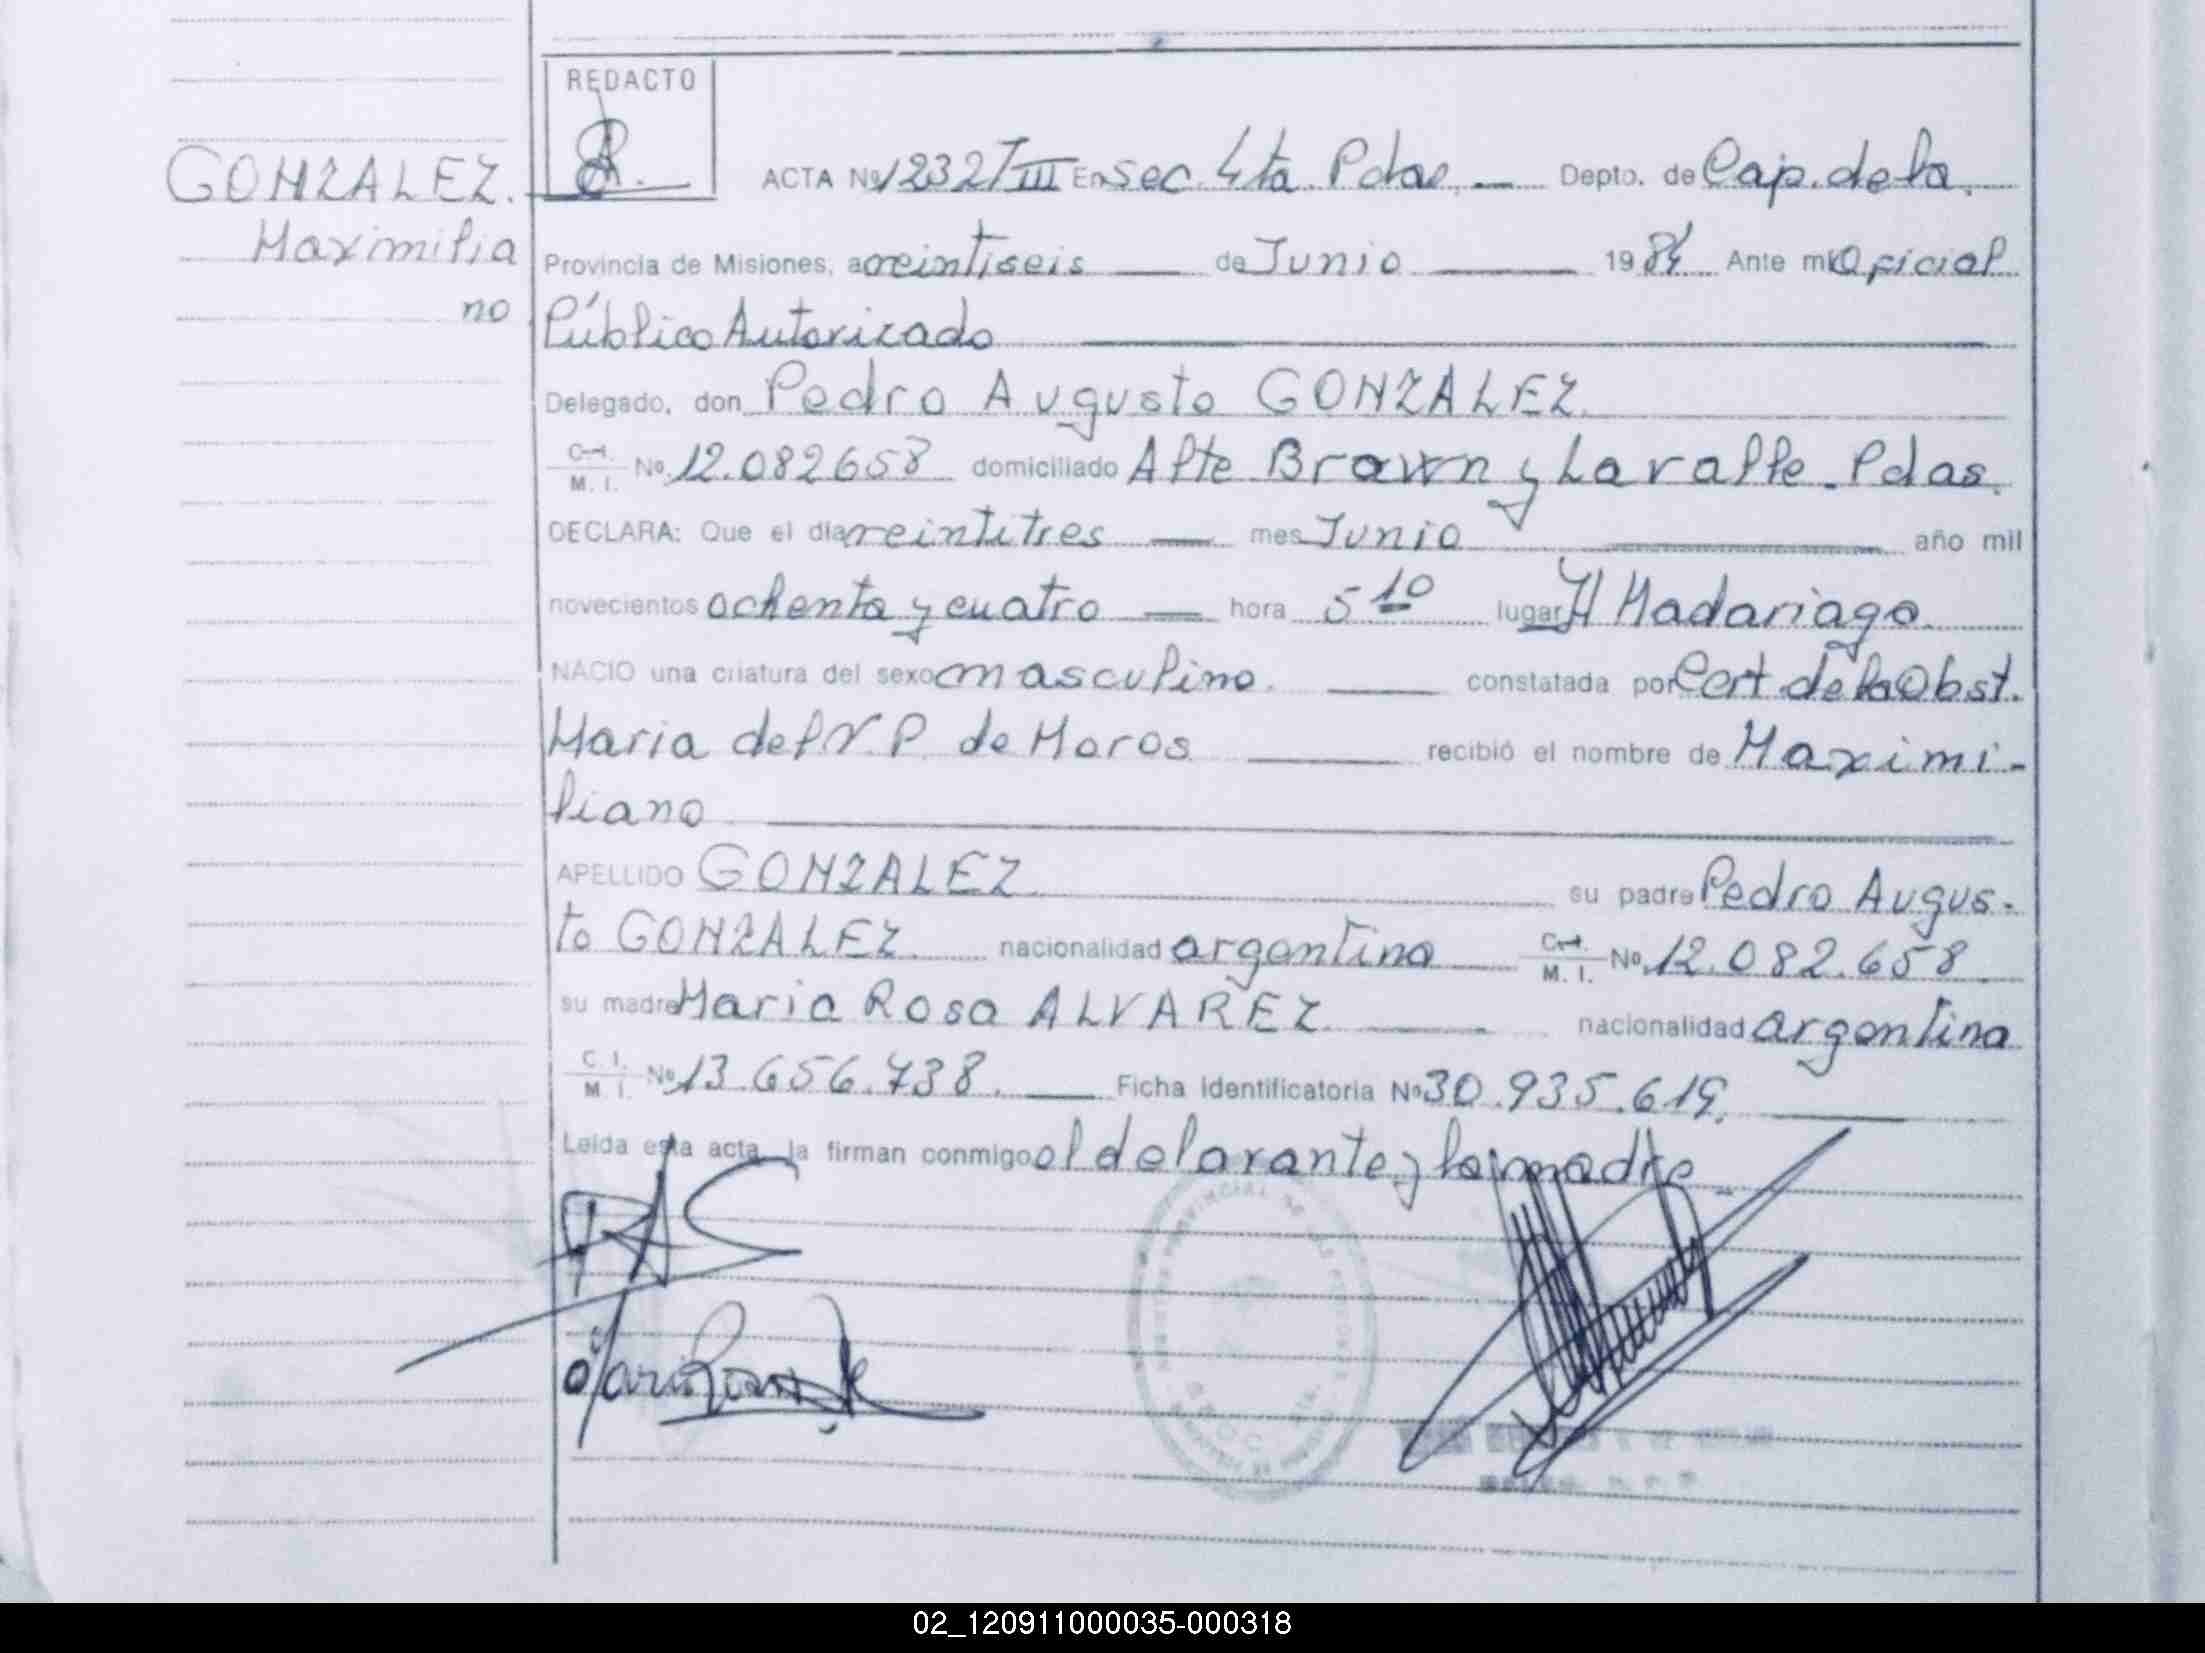 REDACTO
GONZALEZ.
Maximilia
no
ACTA Nº 1232 T III En Sec. 4ta. Pdas. Depto. de Cap. de la
Provincia de Misiones, a veintiseis de Junio 1984 Ante mi Oficial
Público Autorizado
Delegado, don Pedro Augusto GONZALEZ
C.I. M. I. No. 12.082658 domiciliado Alte Brown y Lavalle. Pdas.
DECLARA: Que el día veintitres mes Junio año mil
novecientos ochenta y cuatro hora 5 10 lugar H Madariaga
NACIO una criatura del sexo masculino. constatada por Cert de la Obst.
Maria del V. P. de Moros recibió el nombre de Maximi-
liano
APELLIDO GONZALEZ su padre Pedro Augus-
to GONZALEZ nacionalidad argentina C.I. M. I. No. 12.082.658
su madre Maria Rosa ALVAREZ nacionalidad argentina
C. I. M. I. No 13.656.738. Ficha identificatoria Nº 30.935.619.
Leida esta acta la firman conmigo el delarante y la madre
02_120911000035-000318